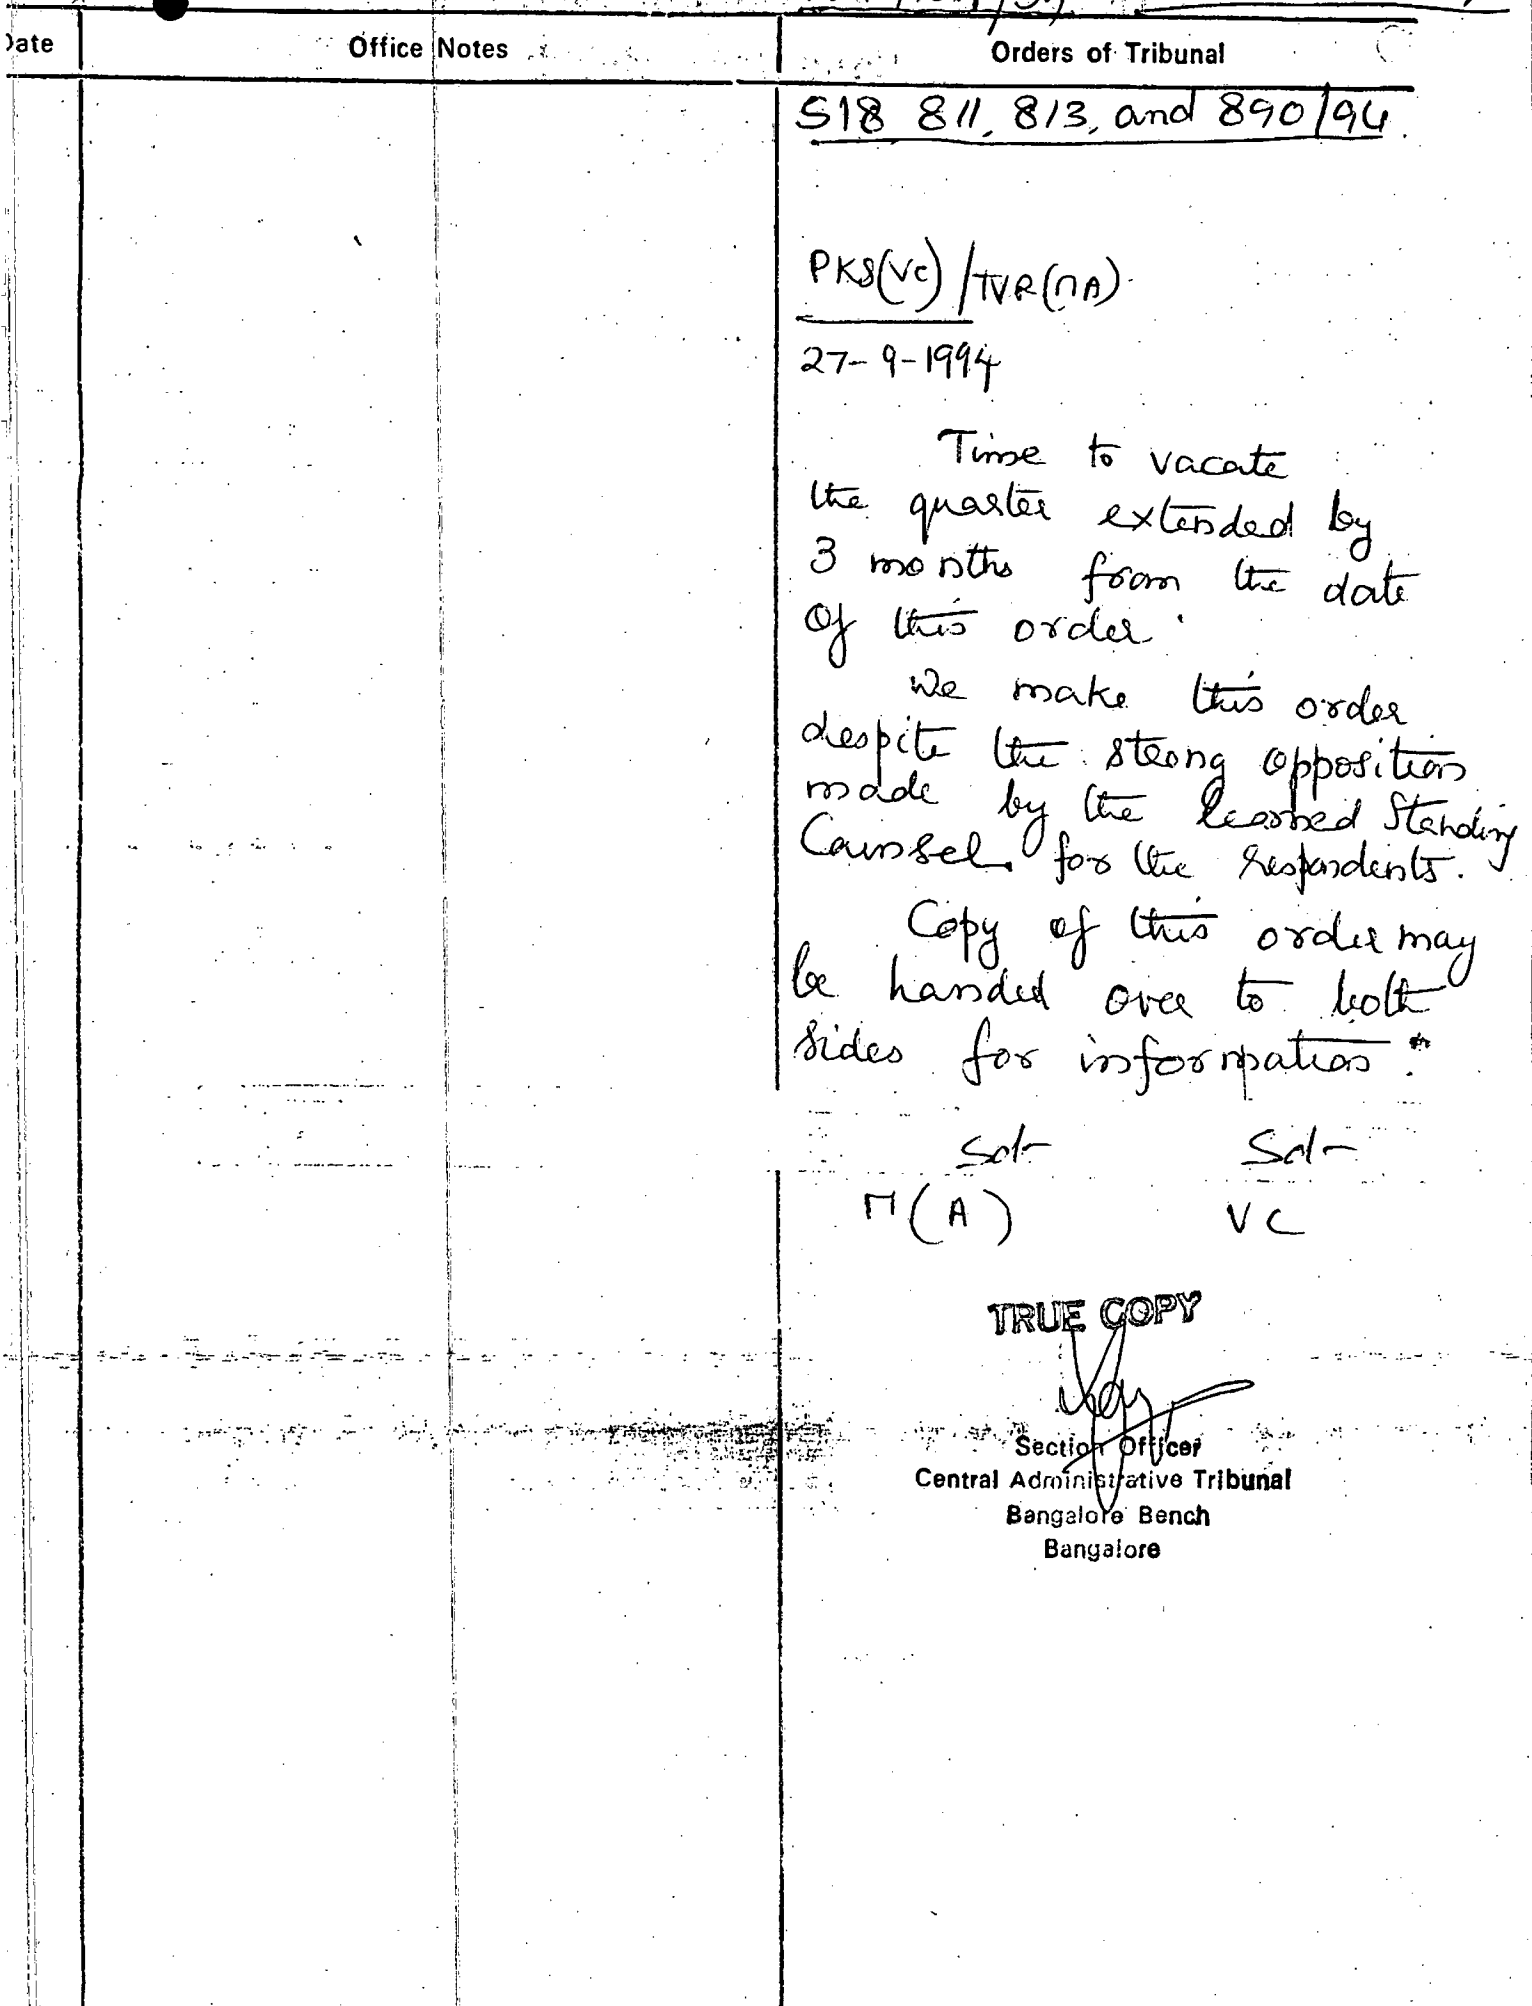 Date Office Notes Orders of Tribunal
518 811, 813, and 890/94.
PKS(VC)/TVR(MA)
27-9-1994
Time to vacate
the quarter extended by
3 months from the date
of this order.
We make this order
despite the strong opposition
made by the learned Standing
Counsel for the respondents.
Copy of this order may
be handed over to both
sides for information.
Sd/- Sd/-
M(A) VC
TRUE COPY
Section Officer
Central Administrative Tribunal
Bangalore Bench
Bangalore